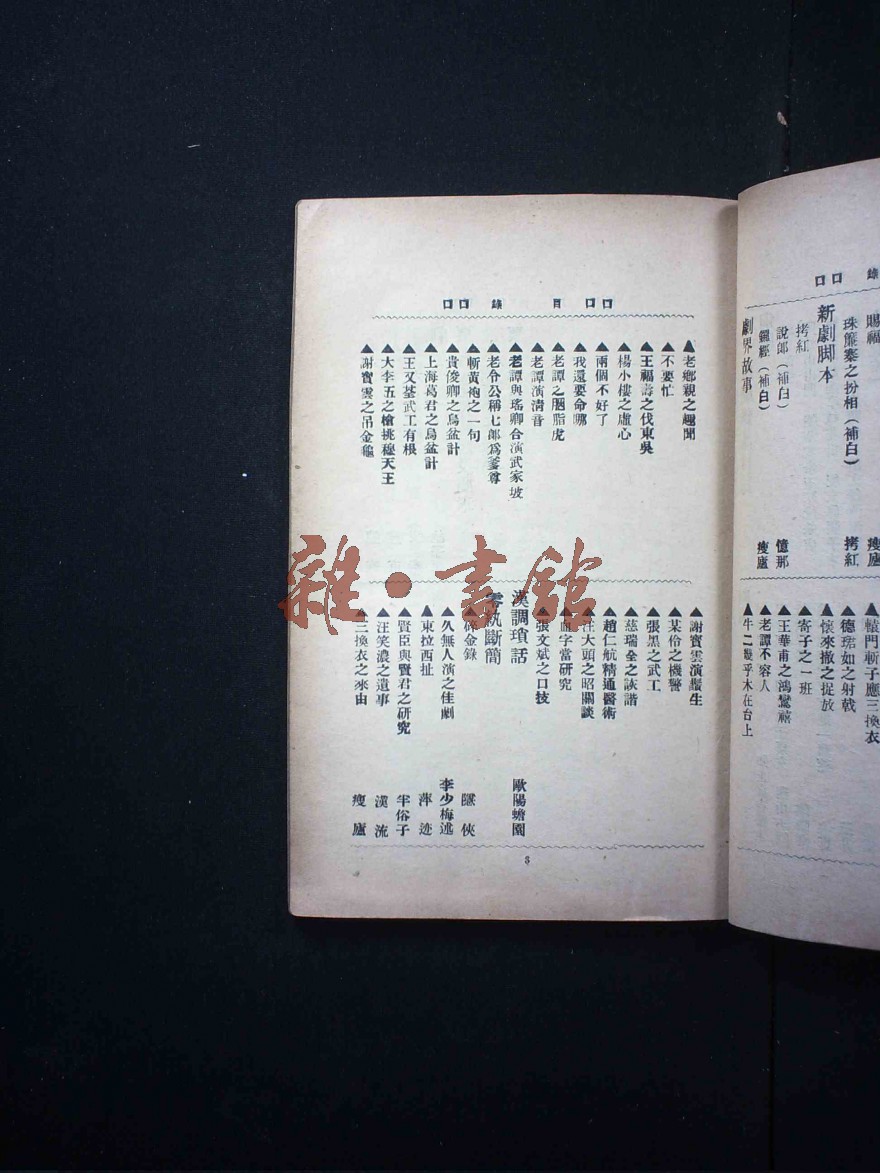 錄 口口
賜福 瘦廬
珠簾寨之扮相（補白） 拷紅
新劇脚本
拷紅
說郎（補白） 憶那
（補白） 瘦廬
劇界故事
轅門斬子應三換衣
▲德珺如之射戟
▲懷來撤之捉放
▲寄子之一班
▲王華甫之鴻鸞禧
▲老譚不容人
▲牛二幾乎木在台上
口口 目 錄 口口
▲老鄉親之趣聞
▲不要忙
▲王福壽之伐東吳
▲楊小樓之虛心
▲兩個不好了
▲我還要命哪
▲老譚之胭脂虎
▲老譚演清音
▲老譚與瑤卿合演武家坡
老令公稱七郎爲爹尊
▲斬黃袍之一句
▲貴俊卿之烏盆計
▲上海葛君之烏盆計
▲王又荃武工有根
▲大李五之槍挑穆天王
▲謝寶雲之吊金龜
▲謝寶雲演鬚生
▲某伶之機警
▲張黑之武工
▲慈瑞全之詼諧
▲趙仁航精通醫術
▲汪大頭之昭關談
▲血字當研究
▲張文斌之口技
漢調瑣話 歐陽蟾園
零紈斷簡
▲碎金錄 隱俠
▲久無人演之佳劇 李少梅述
▲東拉西扯 萍迹
▲賢臣與賢君之研究 半俗子
▲汪笑濃之遺事 漢流
▲三換衣之來由 瘦廬
3
雜·書館